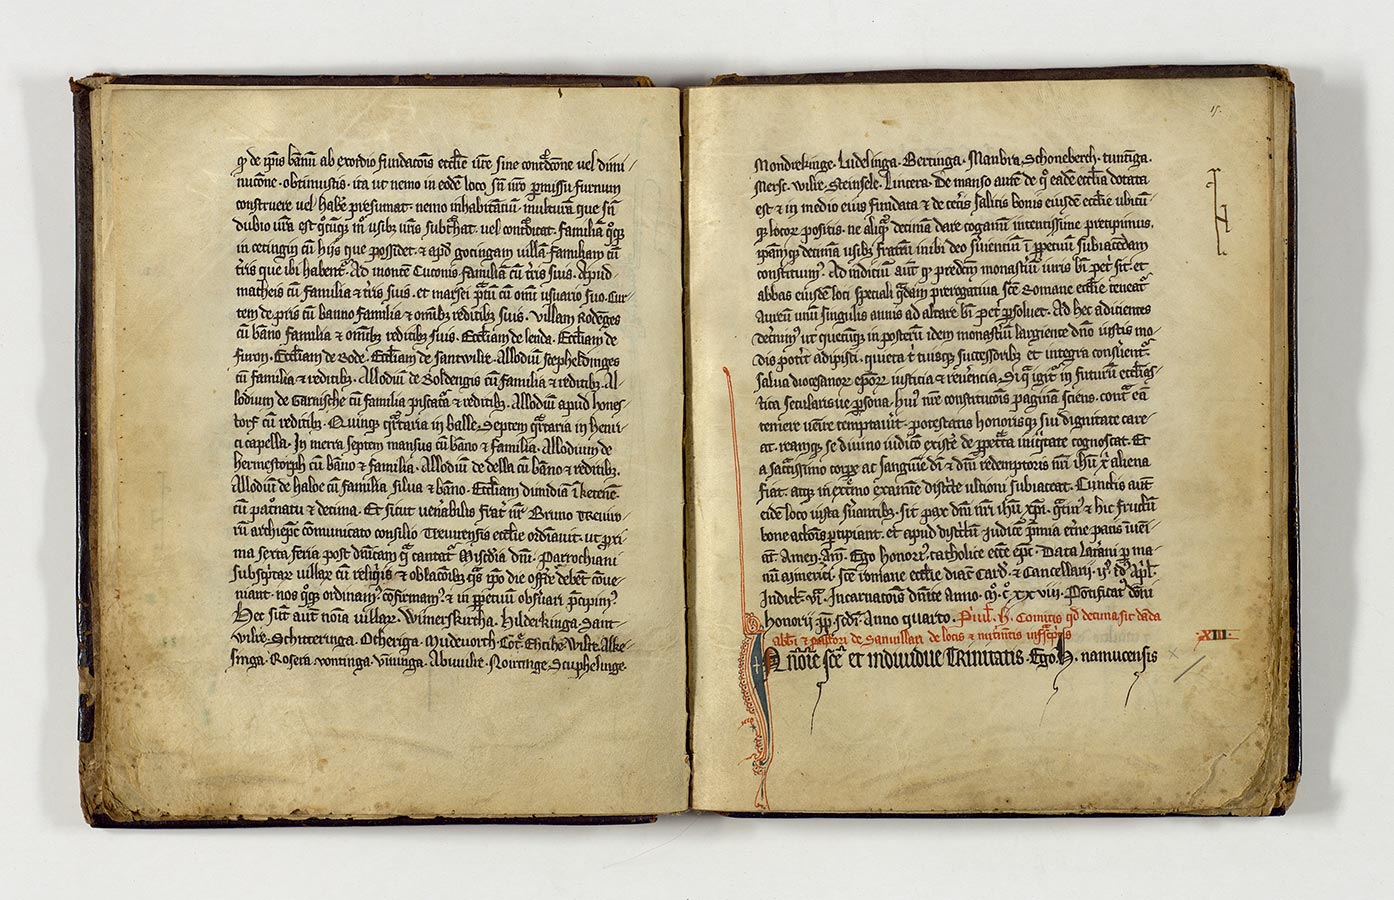 de ip̄is bānū ab exordio fundatōis ecctie ur̄e sine vel dimi
nucōne. obtinuistis. ita ut nemo in eodē loco sn̄ ur̄o p̄missu furnum
construere vel habe presumat. nemo inhabitātiū multurā que sn̄
dubio ur̄a est in usibz ur̄is subt̄hat. vel familiā qoqz
in cetingin cū hiis que possidet. & apd gocingam villā familiam cū
t̄ris que ibi habent᷑. Ad montē Cuconis familiā cū t̄ris suis. Apud
matheis cū familia & t̄ris suis. et marsei p̄tū cū om̄i usuario suo. Cur
tem de pris cū banno familia & om̄ibz reditibz suis. villam Rodēges
cū bāno familia & om̄ibz reditibz suis. Ecct̄iam de lenda. Ecct̄iam de
furon. Ecct̄iam de Bode. Ecct̄iam de santwilre. Allodiū scepheldinges
cū familia & reditibz. Allodiū de Boldengis cū familia & reditibz. Al
lodium de Garnische cū familia piscat᷑a & reditibz. Allodiū apud hones
torf cū reditibz. Quinqz q᷑rtaria in balle. Septem q᷑rtaria in henri
ci capella. In merra septem mansus cū bāno & familia. Allodium de
hermestorph cū bāno & familia. Allodiū de della cū bāno & reditibz.
Allodiū de halve cū familia silua & bāno. Ecct̄iam dimidiā ī ketenē
cū pat̄natu & decima. Et sicut ven̄abilis frat̄ nr̄ Bruno Treuiro
rū archiepc̄ cōmunicato consilio Treuirensis ecct̄ie ordīauit. ut p̄xi
ma sexta feria post dn̄icam q̄ cantat᷑ Misc̄dia dn̄i. Parrochiani
subsc̄ptar villar cū reliq̄is & oblacōibz q᷑s ip̄o die offr̄e debēt cōue
niant. nos qoqz ordinam᷒. cōfirmam᷒. & in p̄petuū obs̄uari p̄cipim᷒.
Hec sūt aut̄ nōia villar. Wimerskirtha. Hilderkinga. Sant
wilre. Schitteringa. Otheriga. Mideuorth. Cot᷑. Ethehe. Wilre. Alke
singa. Rosera. vontinga. Vīninga. Abiuuilre. Noirtinge. Scuphelinge.
15.
Mondrekinge. Ludelinga. Bertinga. Manbra. Schoneberch. tuntīga.
Mersc. wilre. Steinsele. Lincera. De manso autē de qo eadē ecct̄ia dotata
est & in medio eius fundata & de cet̄is salicis bonis eiusdē ecct̄ie ubicū
qz locor positis. ne aliqm̄ decimā dare coganī intentissime precipim᷒.
ipāmqz decimā usibz fratrū inibi deo s̄uientiū ī p̄petuū subiacēdam
constituim᷒. Ad indiciū aut̄ qo predc̄m monast̄iū iuris bī pet̄ sit. et
abbas eiusdē loci speciali q᷑dam prerogatiua sc̄e Romane ecct̄ie teneat᷑
Aureū unū singulis annis ad altare bī pet̄ p̄soluet. Ad hec adicientes
det̄nim᷒ ut quecūqz in posterū idem monast̄iū largiente dn̄o iustis mo
dis pot̄it adipisci. quieta t̄ tuisqz successoribz et integra conser̄uent᷑.
salua diocesanor ep̄or iusticia & reu̅encia. Si q᷑ igit᷑ in futurū eccl̄ias
tica secularisue p̄sona. hui᷒ nr̄e constitucōis paginā sciens. cont᷑ eā
temere uenire temptau̅it. potestatis honorisqz sui dignitate care
at. reamqz se diuino iudicō existe de p̄petrata iniq̄tate cognoscat. Et
a sac̄tissimo corpe ac sanguīe dī & dn̄i redemptoris nr̄i ih̄u xp̄i aliena
fiat. atqz in ext̄mo examīe districte ultioni subiaceat. Cūctis aut̄
eidē loco iusta s̄uantibz. sit pax dn̄i nr̄i ih̄u xp̄i. q̄tin᷒ & hic fructū
bone actiōis p̄cipiant. et apud districtū iudicē p̄mia et̄ne pacis īuei
āt. Amen. Am̄. Ego honori᷒. catholice ecct̄e ep̄c. Data Lat̄ani p̄ ma
nū aimerici. sc̄e romane ecct̄ie diac̄ Card. & Cancellarii. Apl̄.
Indict̄. vi. Incarnatōis dn̄ice anno. mo. co. xx viii. Pontificat᷒ domi
honorij pp̄ scd̄i. Anno quarto. Priuil̄. H. Comitis qd decima sit dāda
abbī & pastori de Sanuillari de locis & mr̄inētis inf᷑sc̄ptis
XIII.
In nōīe sc̄e et indiuidue Trinitatis. Ego H. namucensis